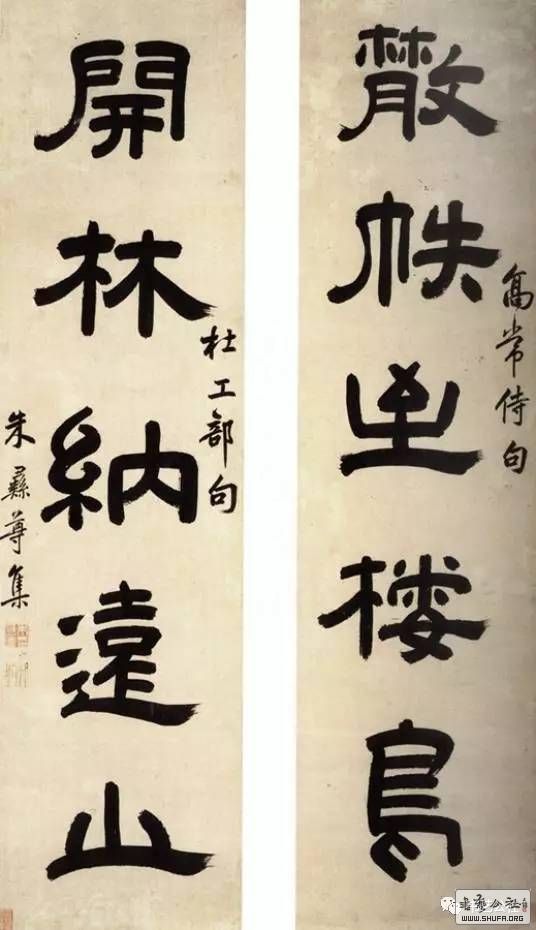 高常侍句
散帙至棲鳥
杜工部句
開林納遠山
朱彝尊集
书艺公社
WWW.SHUFA.ORG